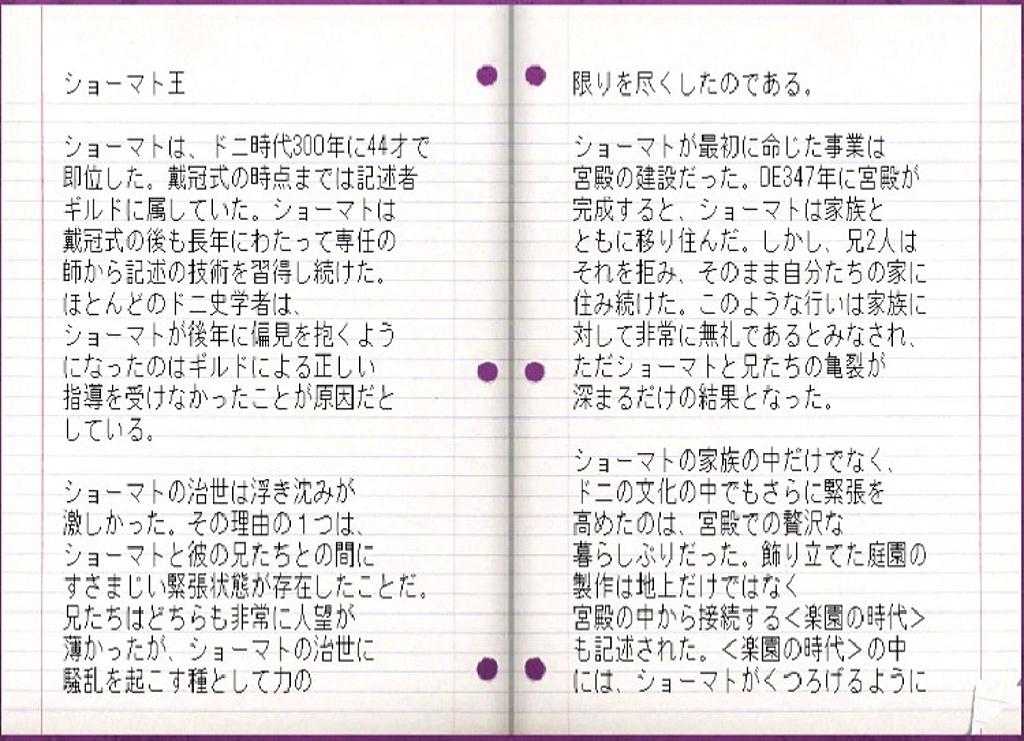 ショーマト王
ショーマトは、ドニ時代300年に44才で
即位した。戴冠式の時点までは記述者
ギルドに属していた。ショーマトは
戴冠式の後も長年にわたって専任の
師から記述の技術を習得し続けた。
ほとんどのドニ史学者は、
ショーマトが後年に偏見を抱くよう
になったのはギルドによる正しい
指導を受けなかったことが原因だと
している。
ショーマトの治世は浮き沈みが
激しかった。その理由の１つは、
ショーマトと彼の兄たちとの間に
すさまじい緊張状態が存在したことだ。
兄たちはどちらも非常に人望が
薄かったが、ショーマトの治世に
騒乱を起こす種として力の
限りを尽くしたのである。
ショーマトが最初に命じた事業は
宮殿の建設だった。DE347年に宮殿が
完成すると、ショーマトは家族と
ともに移り住んだ。しかし、兄2人は
それを拒み、そのまま自分たちの家に
住み続けた。このような行いは家族に
対して非常に無礼であるとみなされ、
ただショーマトと兄たちの亀裂が
深まるだけの結果となった。
ショーマトの家族の中だけでなく、
ドニの文化の中でもさらに緊張を
高めたのは、宮殿での贅沢な
暮らしぶりだった。飾り立てた庭園の
製作は地上だけではなく
宮殿の中から接続する＜楽園の時代＞
も記述された。＜楽園の時代＞の中
には、ショーマトがくつろげるように